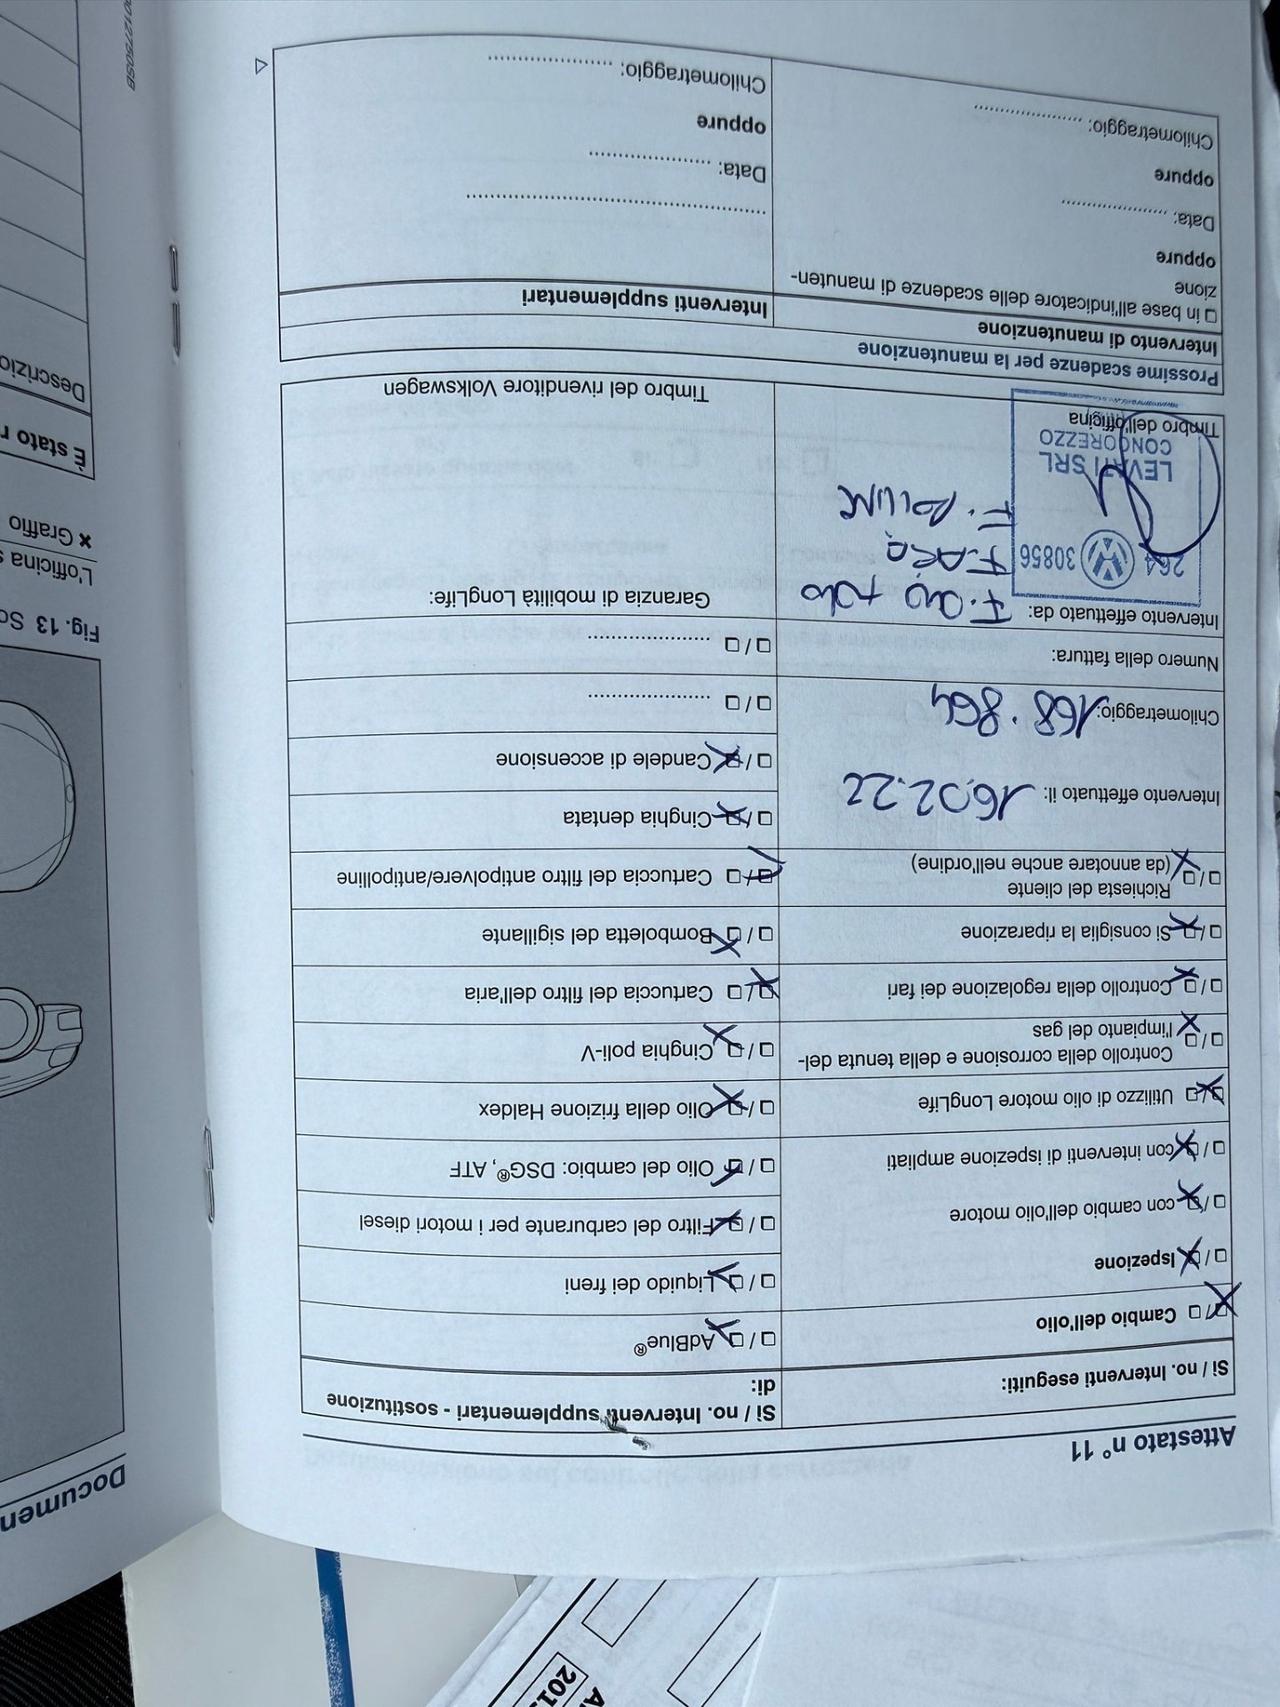 Attestato n° 11
Si / no. Interventi eseguiti:
Cambio dell'olio
Ispezione
con cambio dell'olio motore
con interventi di ispezione ampliati
Utilizzo di olio motore LongLife
Controllo della corrosione e della tenuta del-
l'impianto del gas
Controllo della regolazione dei fari
Si consiglia la riparazione
Richiesta del cliente
(da annotare anche nell'ordine)
Intervento effettuato il: 16.02.22
Chilometraggio: 168.864
Numero della fattura:
Intervento effettuato da:
264 30856
LEVATI SRL
CONCOREZZO
Timbro dell'officina
Si / no. Interventi supplementari - sostituzione
di:
AdBlue®
Liquido dei freni
Filtro del carburante per i motori diesel
Olio del cambio: DSG®, ATF
Olio della frizione Haldex
Cinghia poli-V
Cartuccia del filtro dell'aria
Bomboletta del sigillante
Cartuccia del filtro antipolvere/antipolline
Cinghia dentata
Candele di accensione
Garanzia di mobilità LongLife:
Timbro del rivenditore Volkswagen
Prossime scadenze per la manutenzione
Intervento di manutenzione
in base all'indicatore delle scadenze di manuten-
zione
oppure
Data:
oppure
Chilometraggio:
Interventi supplementari
Data:
oppure
Chilometraggio:
Documen
Fig. 13
L'officina
× Graffio
È stato
Descrizio